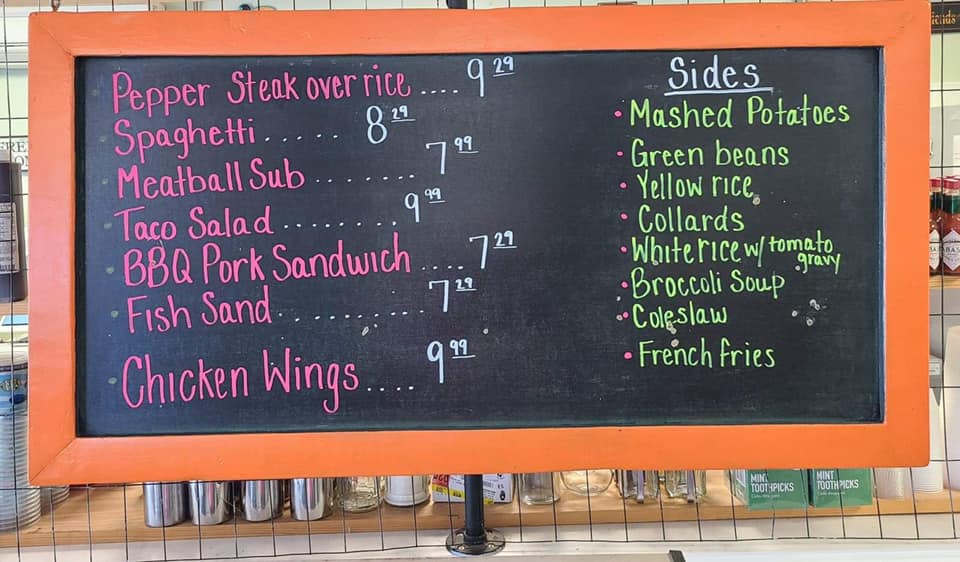 Pepper Steak over rice .... 9 29
Spaghetti ..... 8 29
Meatball Sub ........ 7 99
Taco Salad ......... 9 99
BBQ Pork Sandwich .... 7 29
Fish Sand .......... 7 29
Chicken Wings .... 9 99
Sides
• Mashed Potatoes
• Green beans
• Yellow rice
• Collards
• White rice w/ tomato
gravy
• Broccoli Soup
• Coleslaw
• French fries
MINT
TOOTHPICKS
MINT
TOOTHPICKS